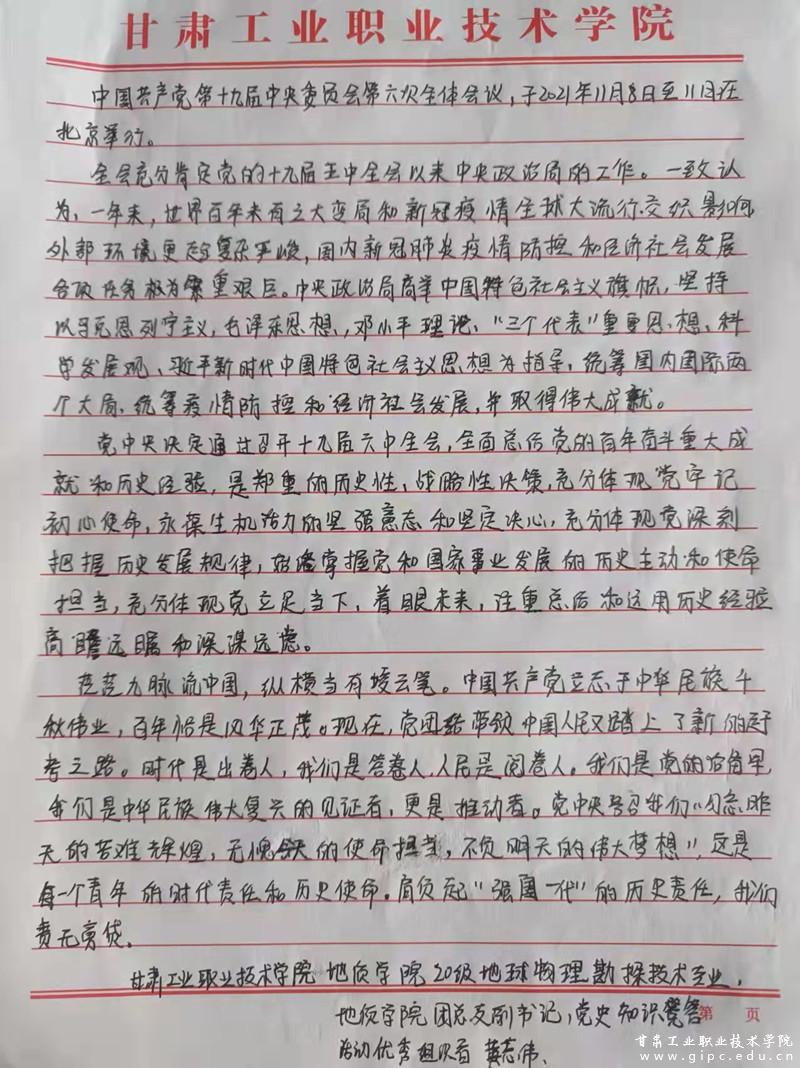 甘肃工业职业技术学院
中国共产党第十九届中央委员会第六次全体会议，于2021年11月8日至11日在
北京举行。
全会充分肯定党的十九届五中全会以来中央政治局的工作。一致认
为，一年来，世界百年未有之大变局和新冠疫情全球大流行交织影响，
外部环境更趋复杂严峻，国内新冠肺炎疫情防控和经济社会发展
各项任务极为繁重艰巨。中央政治局高举中国特色社会主义旗帜，坚持
以马克思列宁主义，毛泽东思想，邓小平理论、“三个代表”重要思想、科
学发展观、习近平新时代中国特色社会主义思想为指导，统筹国内国际两
个大局，统筹疫情防控和经济社会发展，并取得伟大成就。
党中央决定通过召开十九届六中全会，全面总结党的百年奋斗重大成
就和历史经验，是郑重的历史性、战略性决策，充分体现党牢记
初心使命，永葆生机活力的坚强意志和坚定决心，充分体现党深刻
把握历史发展规律，始终掌握党和国家事业发展的历史主动和使命
担当，充分体现党立足当下，着眼未来，注重总结和运用历史经验
高瞻远瞩和深谋远虑。
茫茫九脉流中国，纵横当有凌云笔。中国共产党立志于中华民族千
秋伟业，百年恰是风华正茂。现在，党团结带领中国人民又踏上了新的赶
考之路。时代是出卷人，我们是答卷人，人民是阅卷人。我们是党的治陇军，
我们是中华民族伟大复兴的见证者，更是推动者。党中央号召我们“勿忘昨
天的苦难辉煌，无愧今天的使命担当，不负明天的伟大梦想”，这是
每一个青年的时代责任和历史使命。肩负起“强国一代”的历史责任，我们
责无旁贷。
甘肃工业职业技术学院地质学院20级地球物理勘探技术专业，
地质学院团总支副书记，党史知识竞答
第 页
活动优秀组织者 黄志伟、
甘肃工业职业技术学院
www.gipc.edu.cn